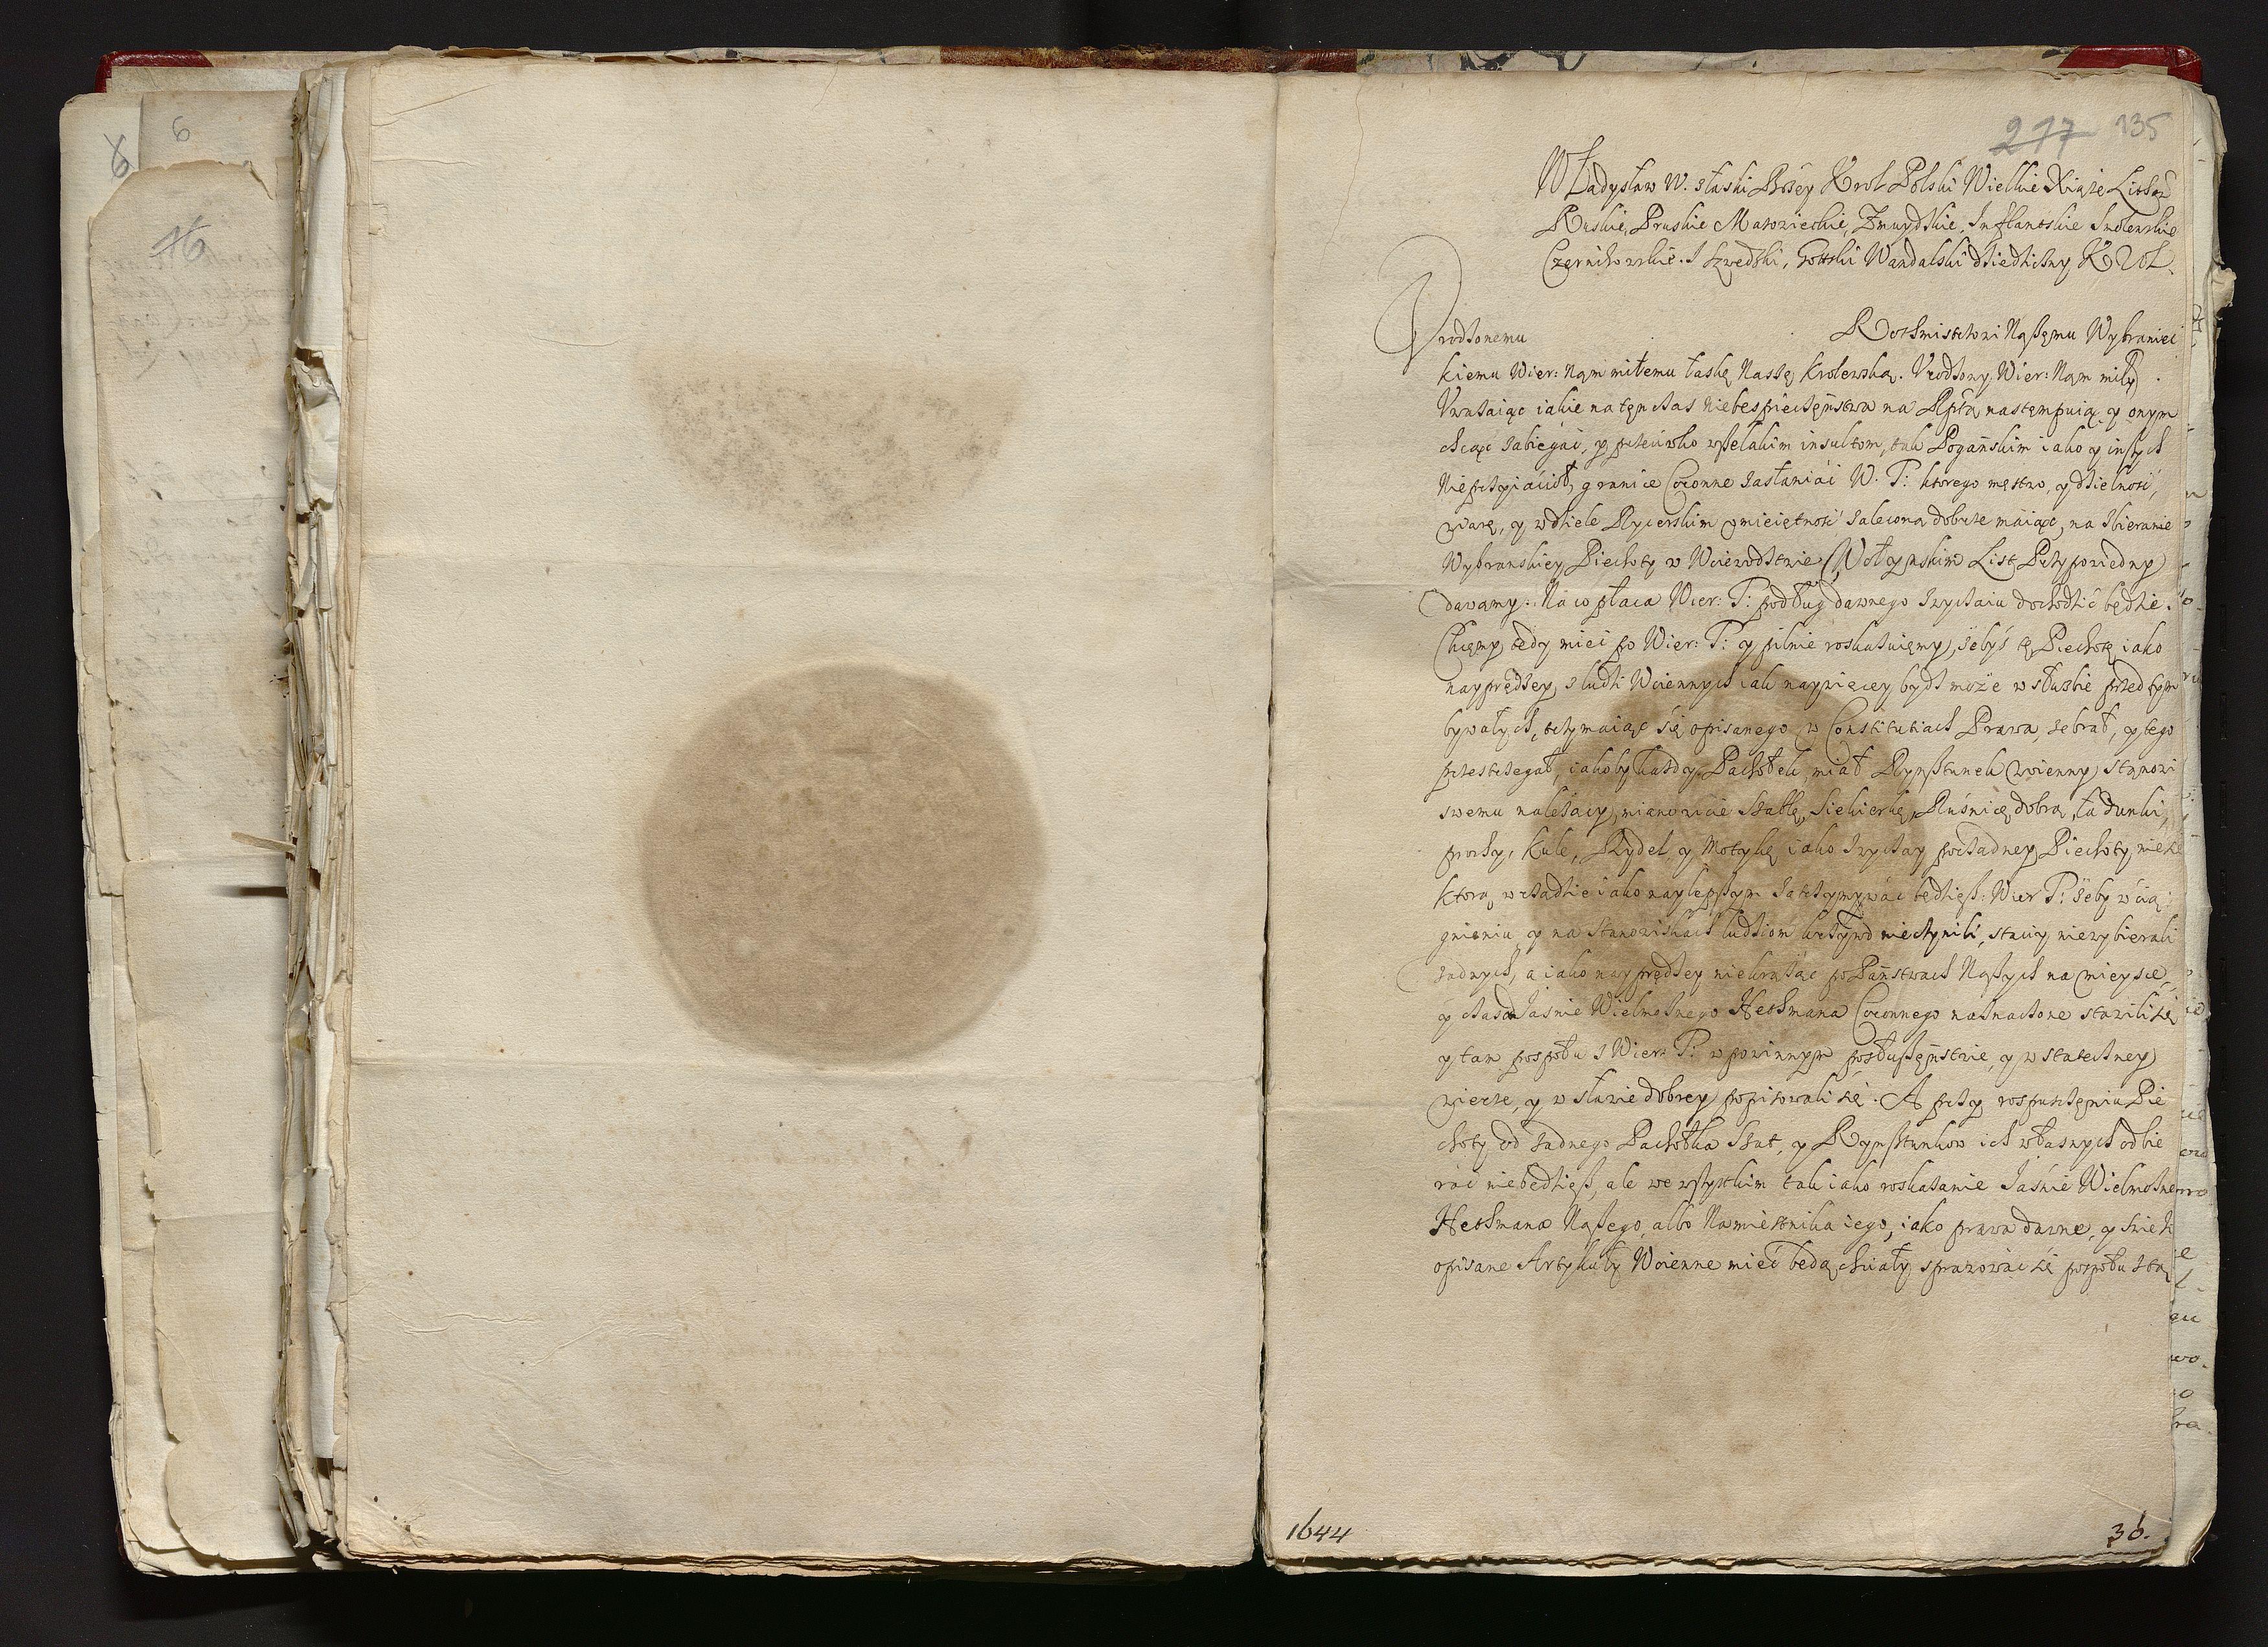 6
8
16
277 135
Władysław IV. z łaski Bożey Krol Polski Wielkie Xiąże Lithew
Ruskie, Pruskie Mazowieckie, Zmuydzkie, Inflantskie Smolenskie
Czernihowskie. I Szwedzki, Gottski Wandalski dziedziczny KROL.
Vrodzonemu Rothmistrzowi Naszemu Wybraniec
kiemu Wier: Nam miłemu łaskę Naszę Krolewską. Vrodzony Wier: Nam miły
Vważaiąc iakie na ten czas niebespieczeństwa na Rptą nastempuią, y onym
chcąc zabiegać, y przeciwko wszelakim insultom, tak Pogańskim iako y inszych
Nieprzyiaciół, granice Coronne zasłaniać W. T: ktorego męstwo, y dzielność,
wiarę, y w dziele Rycerskim vmieiętność zaleconą dobrze maiąc, na zbieranie
Wybranskiey Piechoty w Woiewodztwie Wołynskim List Przypowiedny
dawamy. Na co płaca Wier: T: podług dawnego zwyczaiu dochodzić będzie.
Chcemy tedy mieć po Wier: T: y pilnie roskazuiemy, żebyś tę Piechotę iako
nayprędzey, z ludzi Woiennych iak naywięcey bydz może w służbie przed tym
bywałych, trzymaiąc się opisanego w Constitutiach Prawa, zebrał, y tego
przestrzegał, iakoby każdy Pachołek, miał Rynsztunek woienny stanowi
swemu należący, mianowicie Szablę, Siekierkę, Ruśnicę dobrą, ładunki,
prochy, Kule, Rydel, y Motykę iako zwyczay porządney Piechoty niesie
ktorą w rządzie iako naylepszym zatrzymywać będziesz: Wier T: żeby w cią
gnieniu, y na Stanowiskach ludziom krzywd nieczynili, stacij niewybierali
żadnych, a iako nayprędzey niekrążąc po Państwach Naszych na mieysce,
y czas od Jasnie Wielmożnego Hethmana Coronnego naznaczone stawili się
y tam pospołu z Wier: T: w powinnym posłuszeństwie, y w statecznej
wierze, y w sławie dobrey popisowali się. A przy rospuszczeniu Pie
choty, od żadnego Pachołka Szat, y Rynsztunkow ich własnych odbie
rać niebędziesz, ale we wszystkim tak iako roskazanie Jaśnie Wielmożne
Hethmana Naszego, albo Namiestnika iego, iako prawa dawne, y świeżo
opisane Artykuły Woienne mieć będą chciały sprawować się pospołu ztą
1644
36.